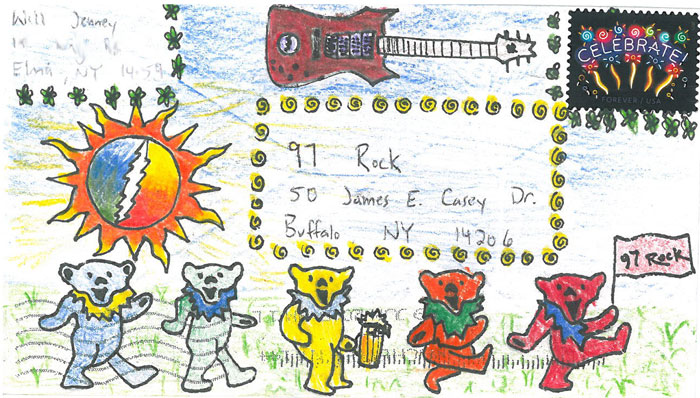 Will
Elma, NY
CELEBRATE!
FOREVER / USA
97 Rock
50 James E. Casey Dr.
Buffalo NY 14206
97 ROCK